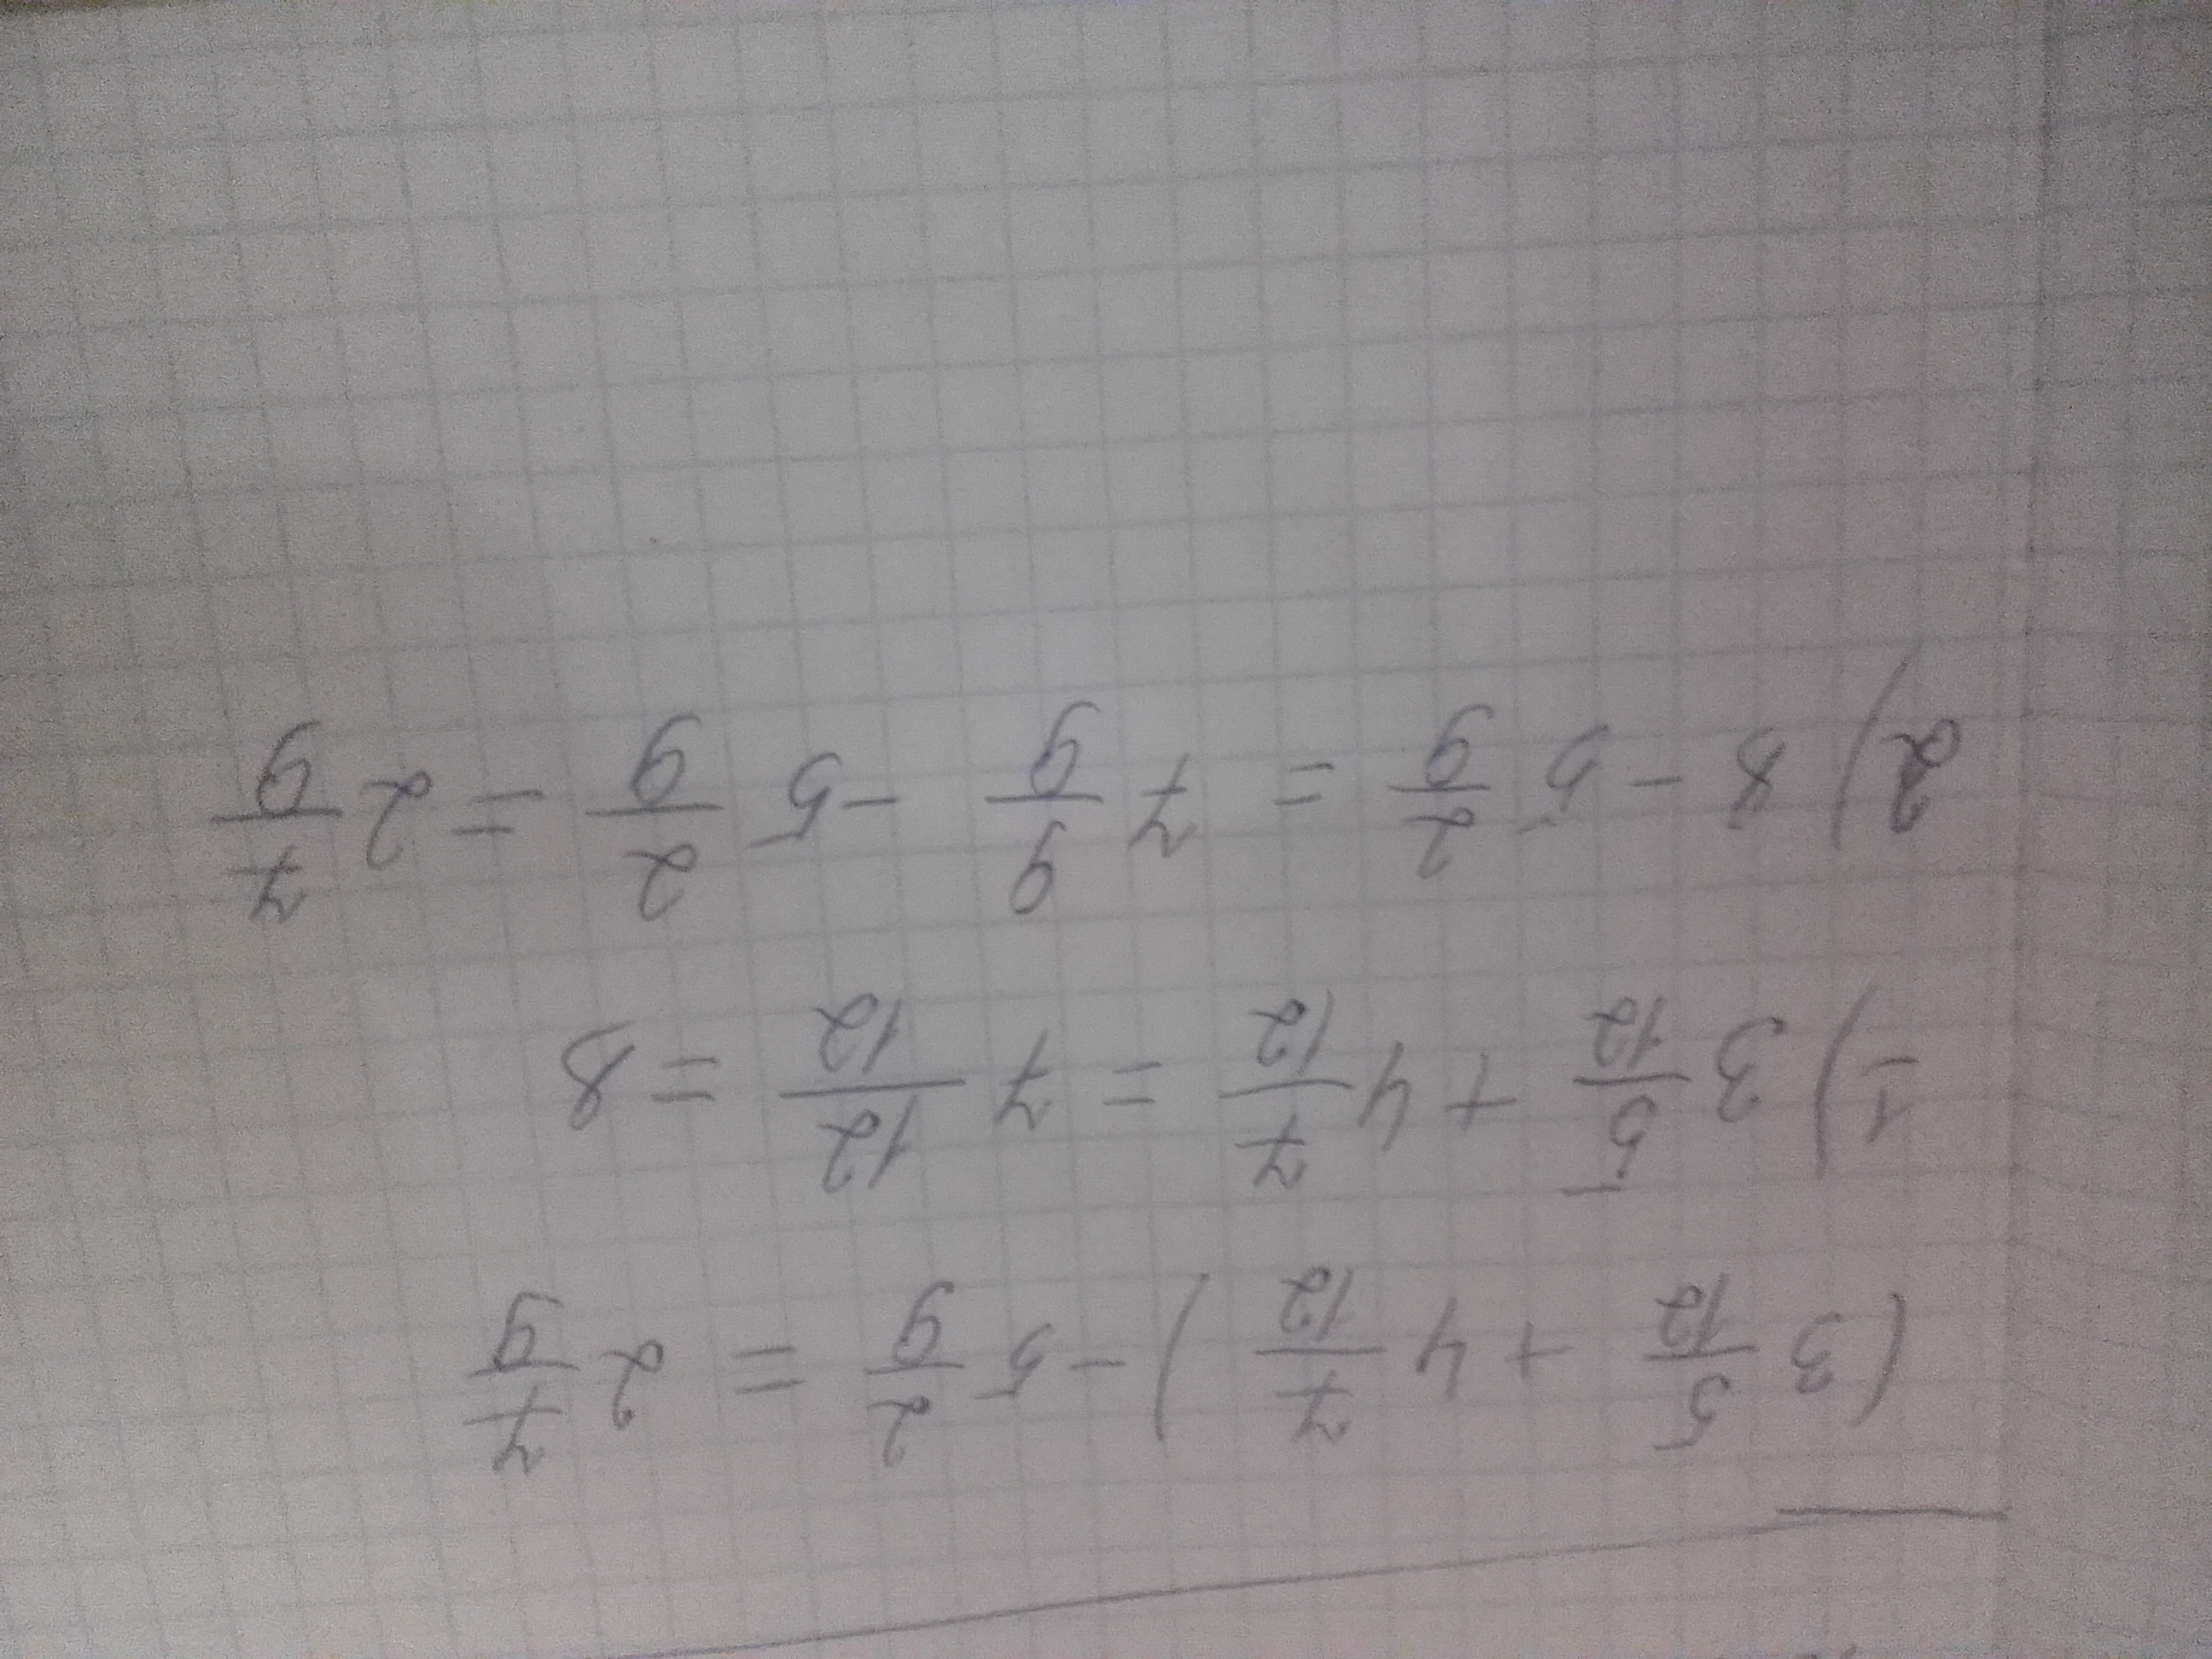 (3 5/12 + 4 7/12) - 5 2/9 = 2 7/9
1) 3 5/12 + 4 7/12 = 7 12/12 = 8
2) 8 - 5 2/9 = 7 9/9 - 5 2/9 = 2 7/9